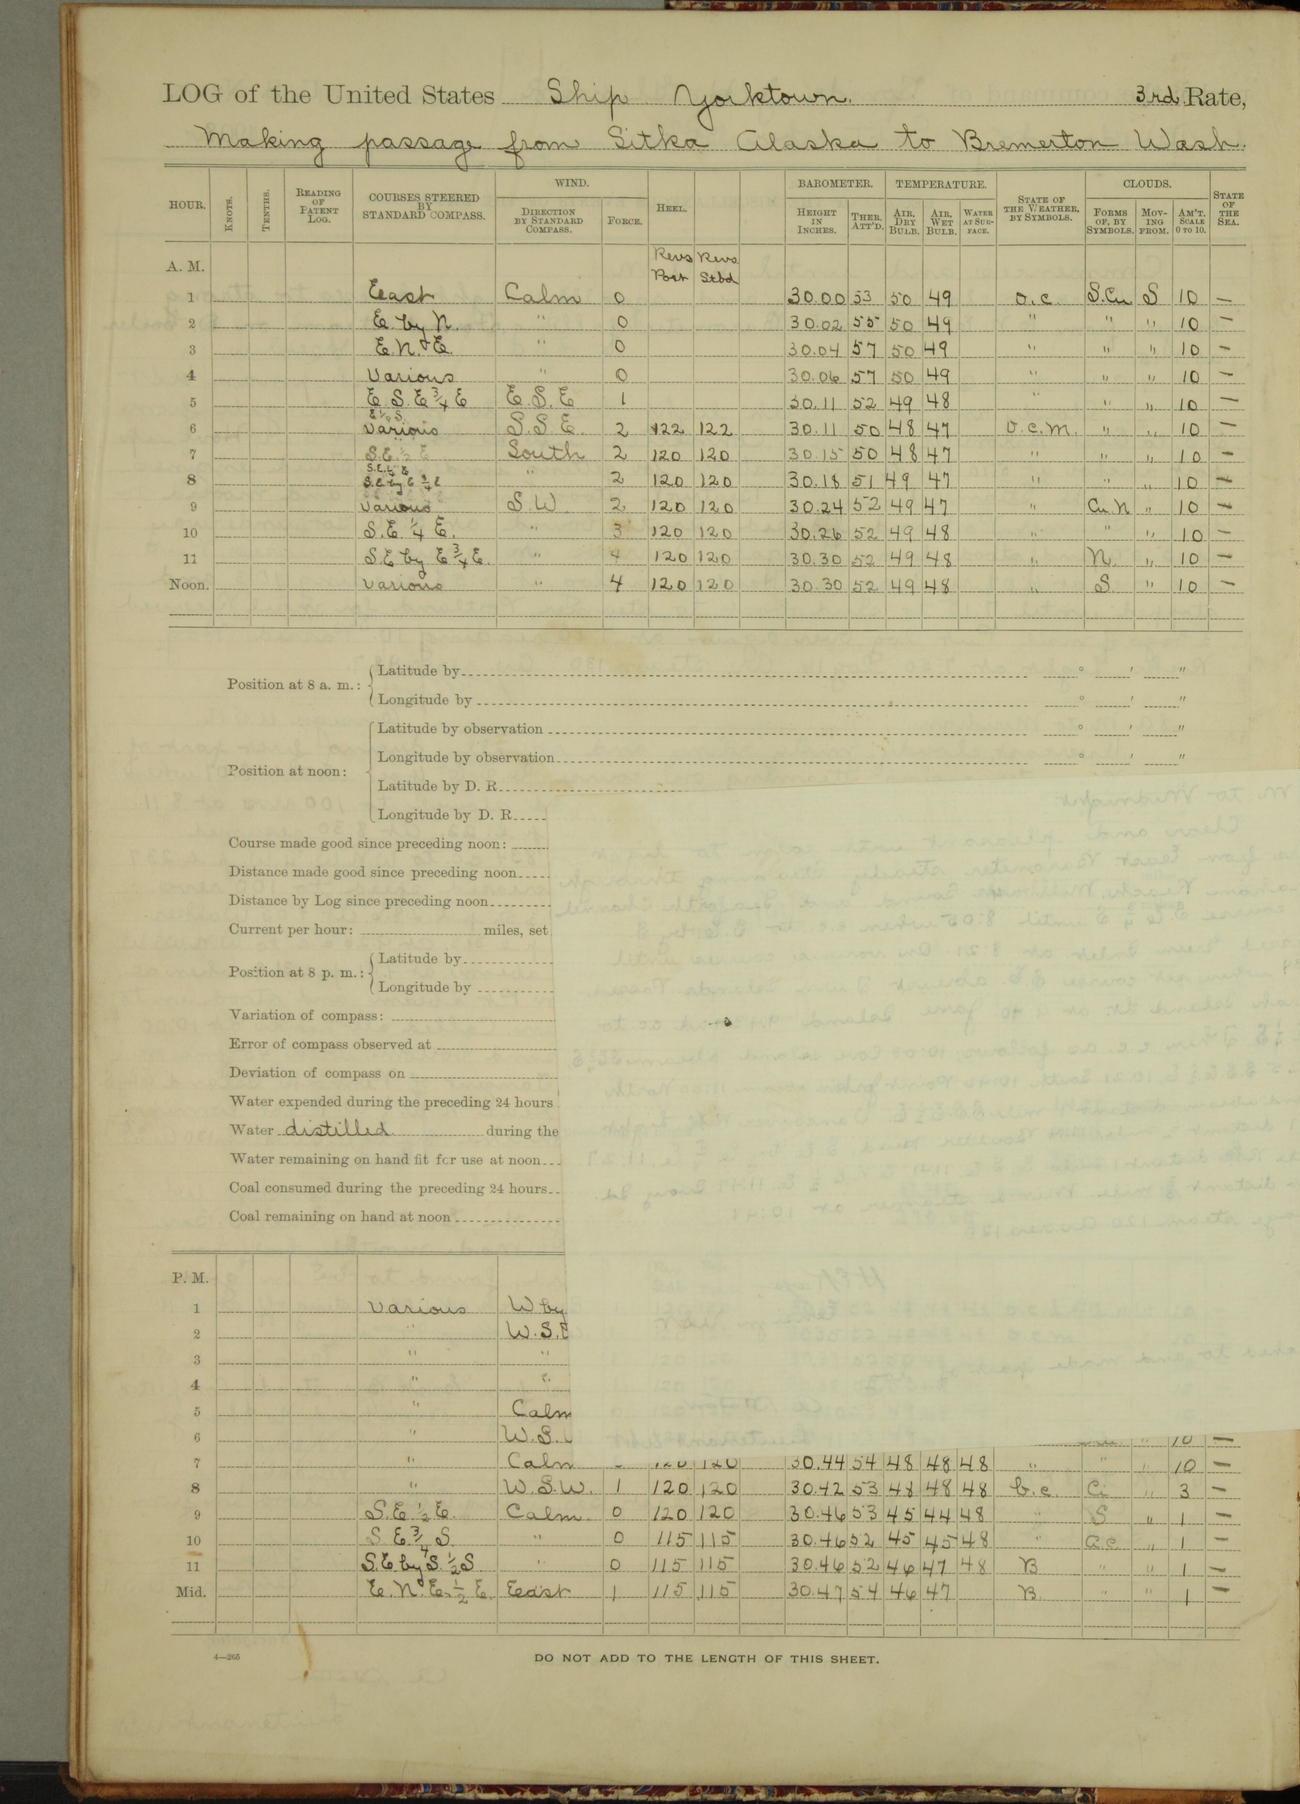 LOG of the United States Ship Yorktown. 3rd Rate,
Making passage from Sitka Alaska to Bremerton Wash.
HOUR. KNOTS. TENTHS. READING OF PATENT LOG. COURSES STEERED BY STANDARD COMPASS. WIND. DIRECTION BY STANDARD COMPASS. FORCE. HEEL. BAROMETER. HEIGHT IN INCHES. THER. ATT'D. TEMPERATURE. AIR, DRY BULB. AIR, WET BULB. WATER AT SURFACE. STATE OF THE WEATHER, BY SYMBOLS. CLOUDS. FORMS OF, BY SYMBOLS. MOVING FROM. AM'T. SCALE 0 TO 10. STATE OF THE SEA.
A. M. Revs Port Revs Stbd
1 East Calm 0 30.00 53 50 49 o.c. S.Cu S 10 —
2 E by N. " 0 30.02 55 50 49 " " " 10 —
3 E.N.E. " 0 30.04 57 50 49 " " " 10 —
4 Various " 0 30.06 57 50 49 " " " 10 —
5 E.S.E ¾ E E.S.E 1 30.11 52 49 48 " " " 10 —
6 E ½ S. Various S.S.E 2 122 122 30.11 50 48 47 o.c.m. " " 10 —
7 S.E. ½ E South 2 120 120 30.15 50 48 47 " " " 10 —
8 S.E. by E ¾ E " 2 120 120 30.18 51 49 47 " " " 10 —
9 Various S.W. 2 120 120 30.24 52 49 47 " Cu.N " 10 —
10 S.E. ¼ E. " 3 120 120 30.26 52 49 48 " " " 10 —
11 S.E by E ¾ E. " 4 120 120 30.30 52 49 48 " N " 10 —
Noon. Various " 4 120 120 30.30 52 49 48 " S " 10 —
Position at 8 a. m.: Latitude by ° ′ ″
Longitude by ° ′ ″
Position at noon: Latitude by observation ° ′ ″
Longitude by observation ° ′ ″
Latitude by D. R.
Longitude by D. R.
Course made good since preceding noon:
Distance made good since preceding noon
Distance by Log since preceding noon
Current per hour: miles, set
Position at 8 p. m.: Latitude by
Longitude by
Variation of compass:
Error of compass observed at
Deviation of compass on
Water expended during the preceding 24 hours
Water distilled during the
Water remaining on hand fit for use at noon
Coal consumed during the preceding 24 hours
Coal remaining on hand at noon
P. M.
1 Various W by
2 " W.S.
3 " "
4 " "
5 " Calm
6 " W.S. " 10 —
7 " Calm 120 120 30.44 54 48 48 48 " " " 10 —
8 " W.S.W. 1 120 120 30.42 53 48 48 48 b.c. Ci. " 3 —
9 S.E. ½ E. Calm 0 120 120 30.46 53 45 44 48 " S " 1 —
10 S E ¾ S " 0 115 115 30.46 52 45 45 48 " " 1 —
11 S.E by S. ½ S " 0 115 115 30.46 52 46 47 48 B " " 1 —
Mid. E.N.E. ½ E. East 1 115 115 30.47 54 46 47 B. " " 1 —
4—265
DO NOT ADD TO THE LENGTH OF THIS SHEET.